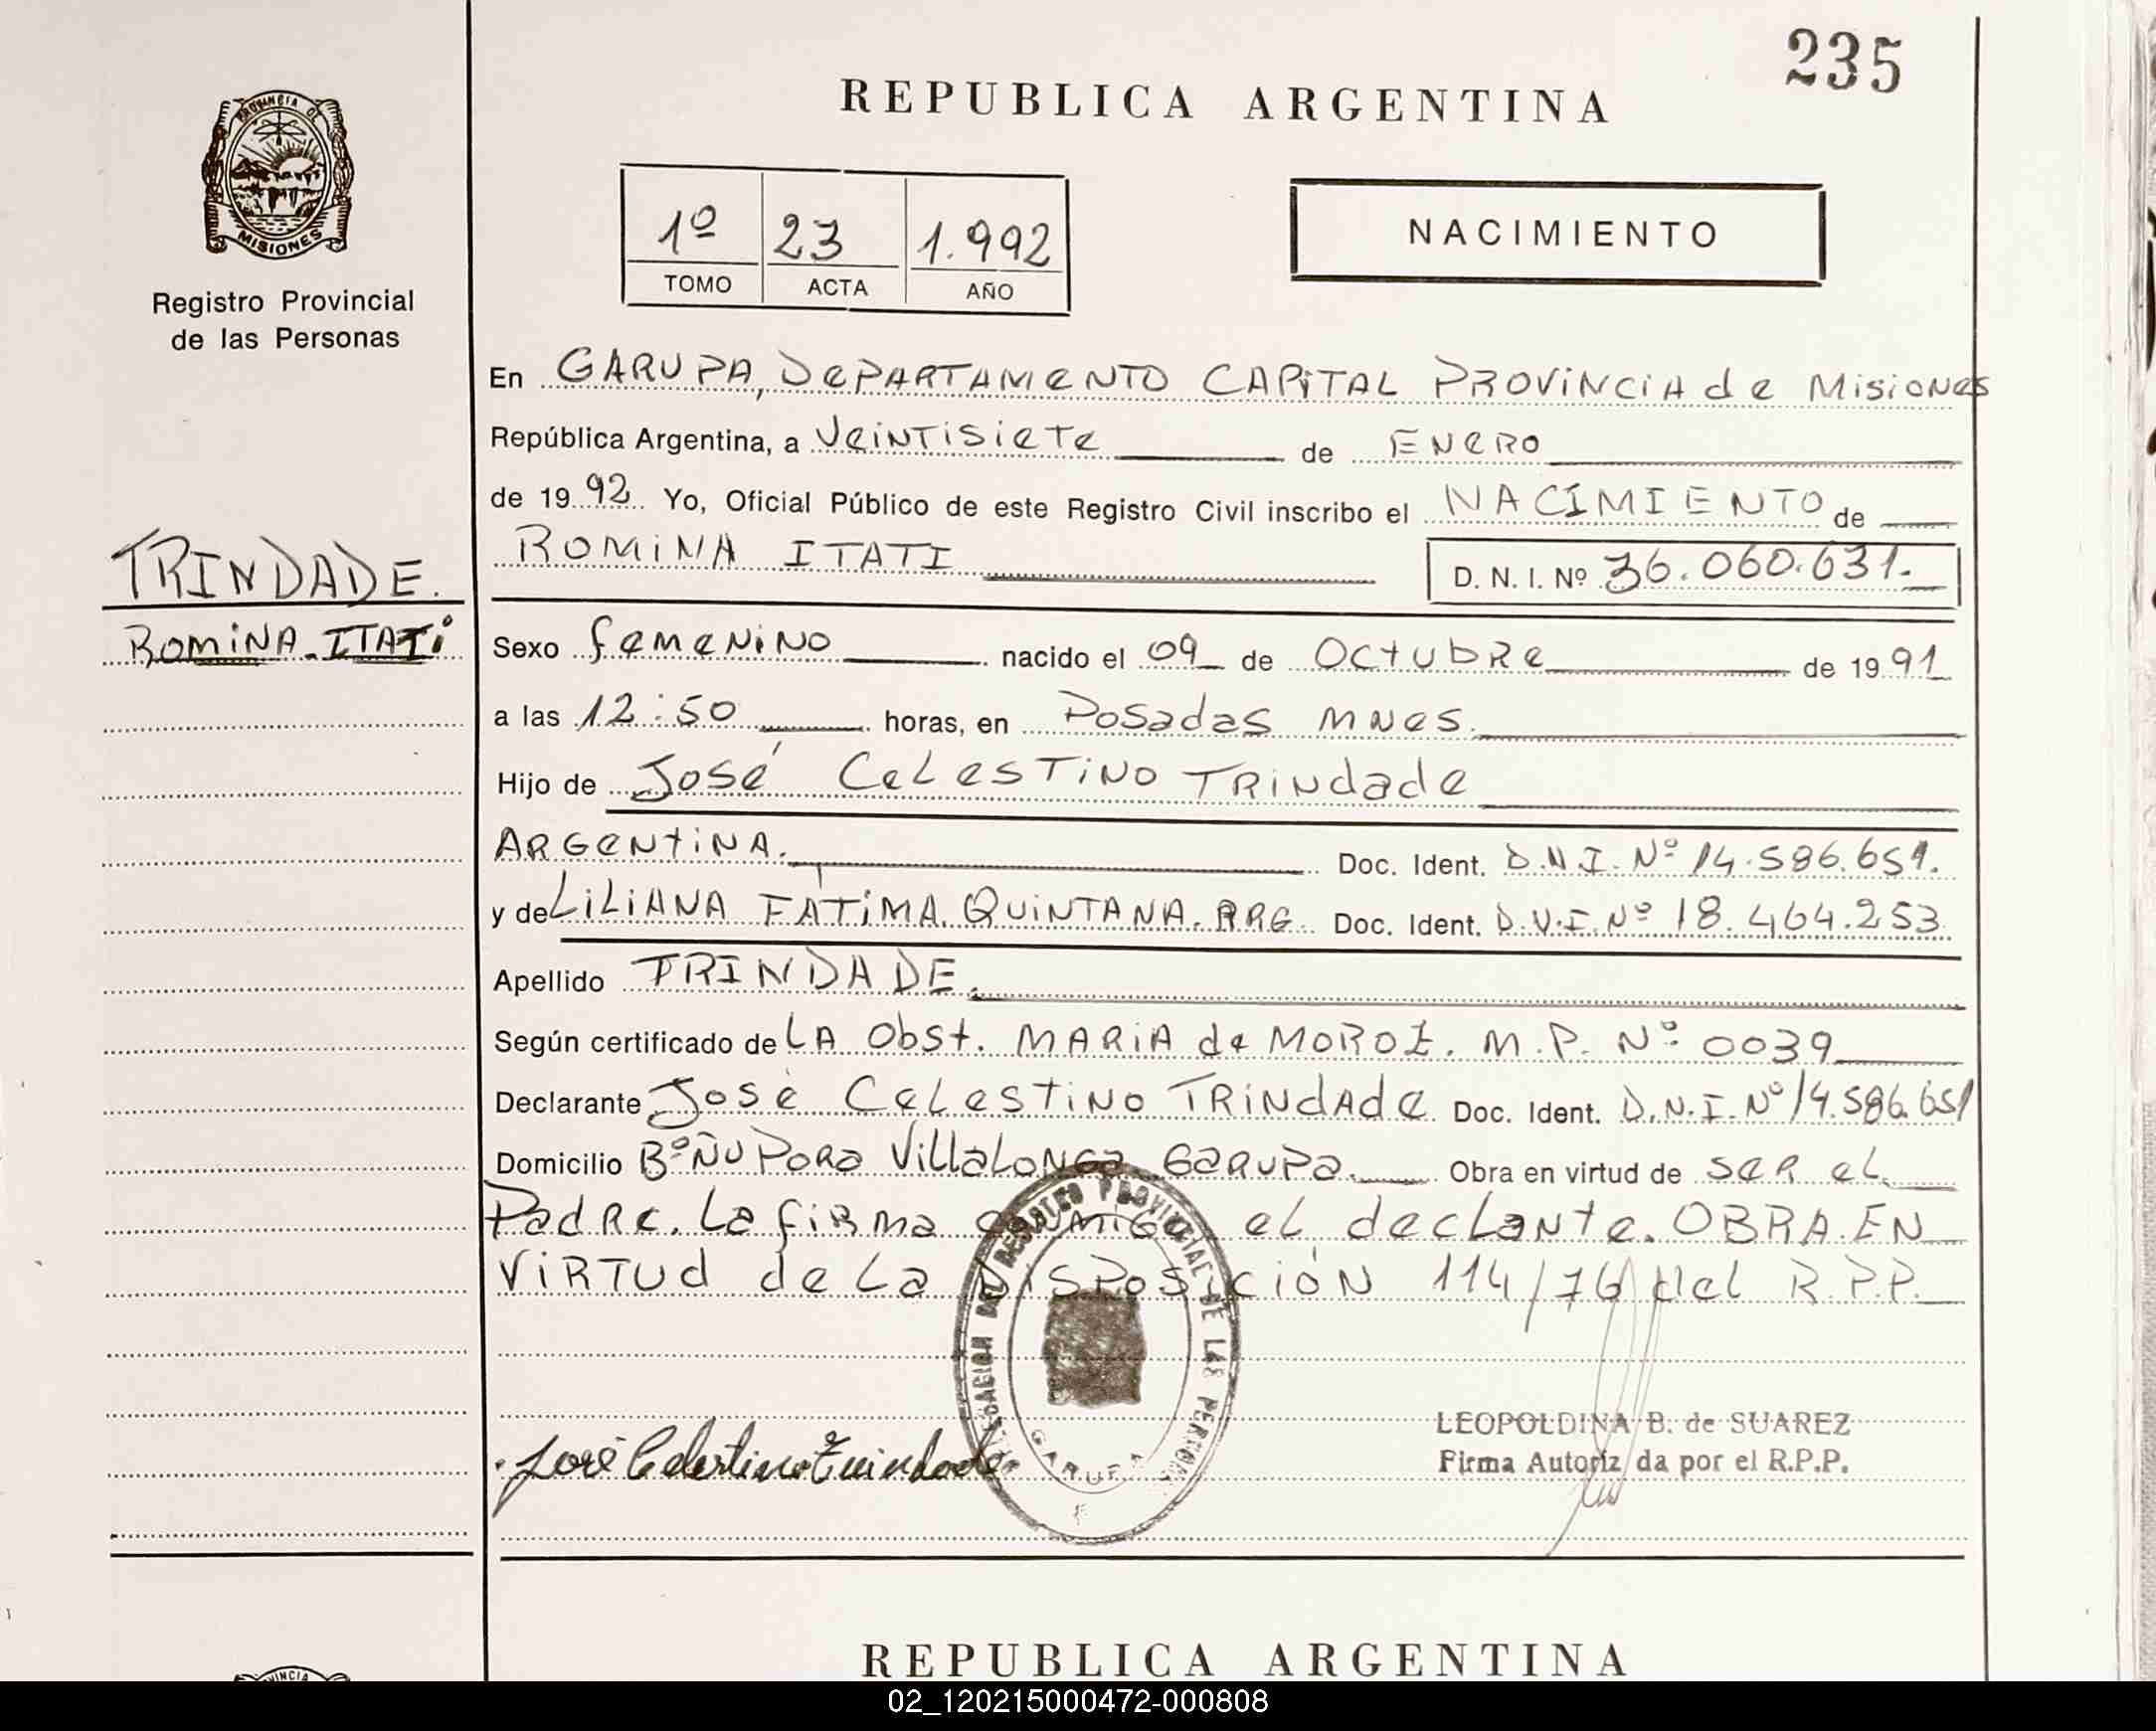 235
REPUBLICA ARGENTINA
PROVINCIA DE
MISIONES
Registro Provincial
de las Personas
1º 23 1.992
TOMO ACTA AÑO
NACIMIENTO
En GARUPA, DePARTAMeNTO CAPiTAL PROViNCiA de MisiONes
República Argentina, a VeiNTiSieTe de ENeRO
de 1992 Yo, Oficial Público de este Registro Civil inscribo el NACIMIENTO de
ROMiNA ITATI D. N. I. Nº 36.060.631.
TRINDADE.
ROMiNA ITATi
Sexo femeNiNO nacido el 09 de OctubRe de 1991
a las 12:50 horas, en Posadas MNes.
Hijo de José CeLesTiNO TRiNdade
ARGeNtiNA. Doc. Ident. D.N.I. Nº 14.586.651.
y de LiLiANA FATiMA QUiNTANA. ARG Doc. Ident. D.N.I. Nº 18.464.253
Apellido TRINDADE.
Según certificado de LA Obst. MARiA de MOROZ. M.P. Nº 0039
Declarante José CeLesTiNO TRiNdAde Doc. Ident. D.N.I. Nº 14.586.651
Domicilio Bº ÑU PoRa VillaLoNga GaRuPa. Obra en virtud de seR eL
PadRe. La fiRma coNmigo eL decLaNte. OBRA EN
ViRTud de La DisPosiciÓN 114/76 del R.P.P.
DEL REGISTRO PROVINCIAL DE LAS PERSONAS
GARUPA
José Celestino Trindade
LEOPOLDINA B. de SUAREZ
Firma Autoriz da por el R.P.P.
REPUBLICA ARGENTINA
02_120215000472-000808